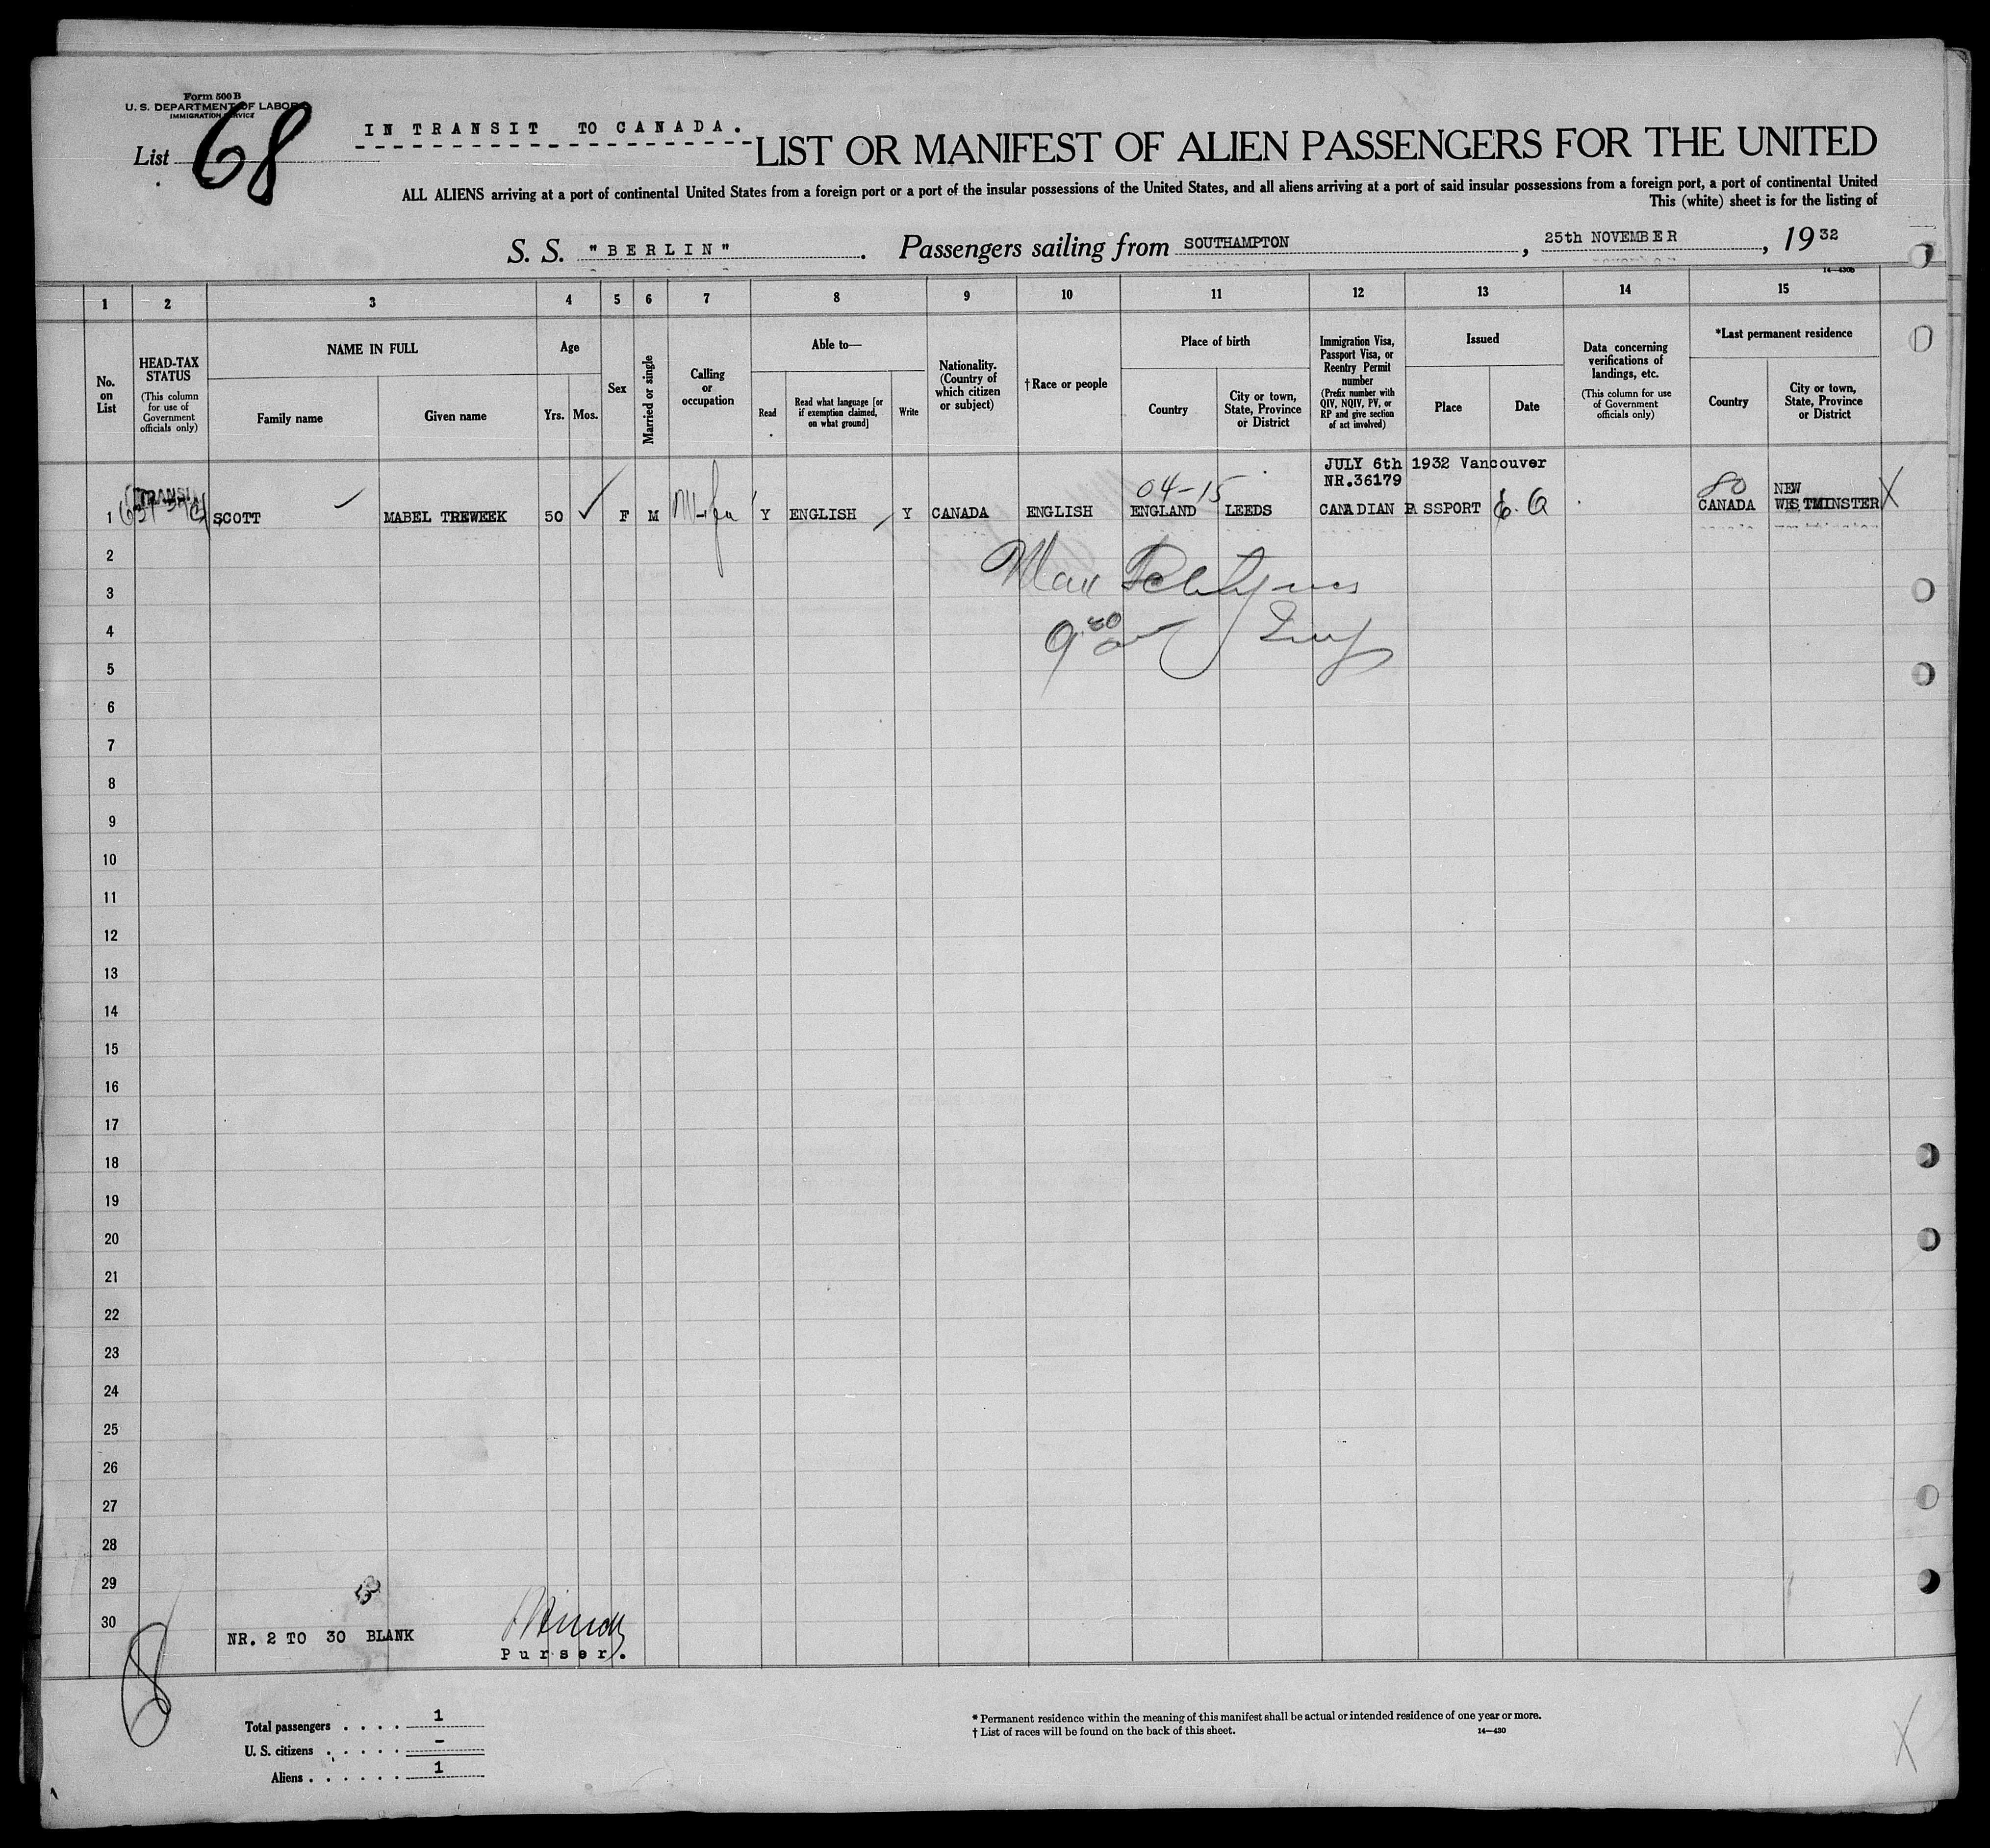 Form 500 B
U. S. DEPARTMENT OF LABOR
IMMIGRATION SERVICE
List 68
IN TRANSIT TO CANADA.
LIST OR MANIFEST OF ALIEN PASSENGERS FOR THE UNITED
ALL ALIENS arriving at a port of continental United States from a foreign port or a port of the insular possessions of the United States, and all aliens arriving at a port of said insular possessions from a foreign port, a port of continental United
This (white) sheet is for the listing of
S. S. "BERLIN". Passengers sailing from SOUTHAMPTON, 25th NOVEMBER, 1932
14—430B
1 2 3 4 5 6 7 8 9 10 11 12 13 14 15
No. on List
HEAD-TAX STATUS
(This column for use of Government officials only)
NAME IN FULL
Family name
Given name
Age
Yrs. Mos.
Sex
Married or single
Calling or occupation
Able to—
Read
Read what language [or if exemption claimed, on what ground]
Write
Nationality. (Country of which citizen or subject)
†Race or people
Place of birth
Country
City or town, State, Province or District
Immigration Visa, Passport Visa, or Reentry Permit number
(Prefix number with QIV, NQIV, PV, or RP and give section of act involved)
Issued
Place
Date
Data concerning verifications of landings, etc.
(This column for use of Government officials only)
*Last permanent residence
Country
City or town, State, Province or District
JULY 6th 1932 Vancouver
NR.36179
04-15
80
NEW
1 TRANSI SCOTT MABEL TREWEEK 50 F M Y ENGLISH Y CANADA ENGLISH ENGLAND LEEDS CANADIAN PASSPORT CANADA WESTMINSTER X
2
3
4
5
6
7
8
9
10
11
12
13
14
15
16
17
18
19
20
21
22
23
24
25
26
27
28
29
30
NR. 2 TO 30 BLANK
Purser.
8
Total passengers . . . . 1
U. S. citizens . . . . . -
Aliens . . . . . . 1
* Permanent residence within the meaning of this manifest shall be actual or intended residence of one year or more.
† List of races will be found on the back of this sheet.
14—430
X